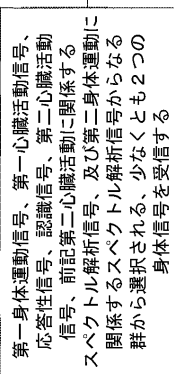 第一身体運動信号、第一心臓活動信号、
応答性信号、認識信号、第二心臓活動
信号、前記第二心臓活動に関係する
スペクトル解析信号、及び第二身体運動に
関係するスペクトル解析信号からなる
群から選択される、少なくとも2つの
身体信号を受信する